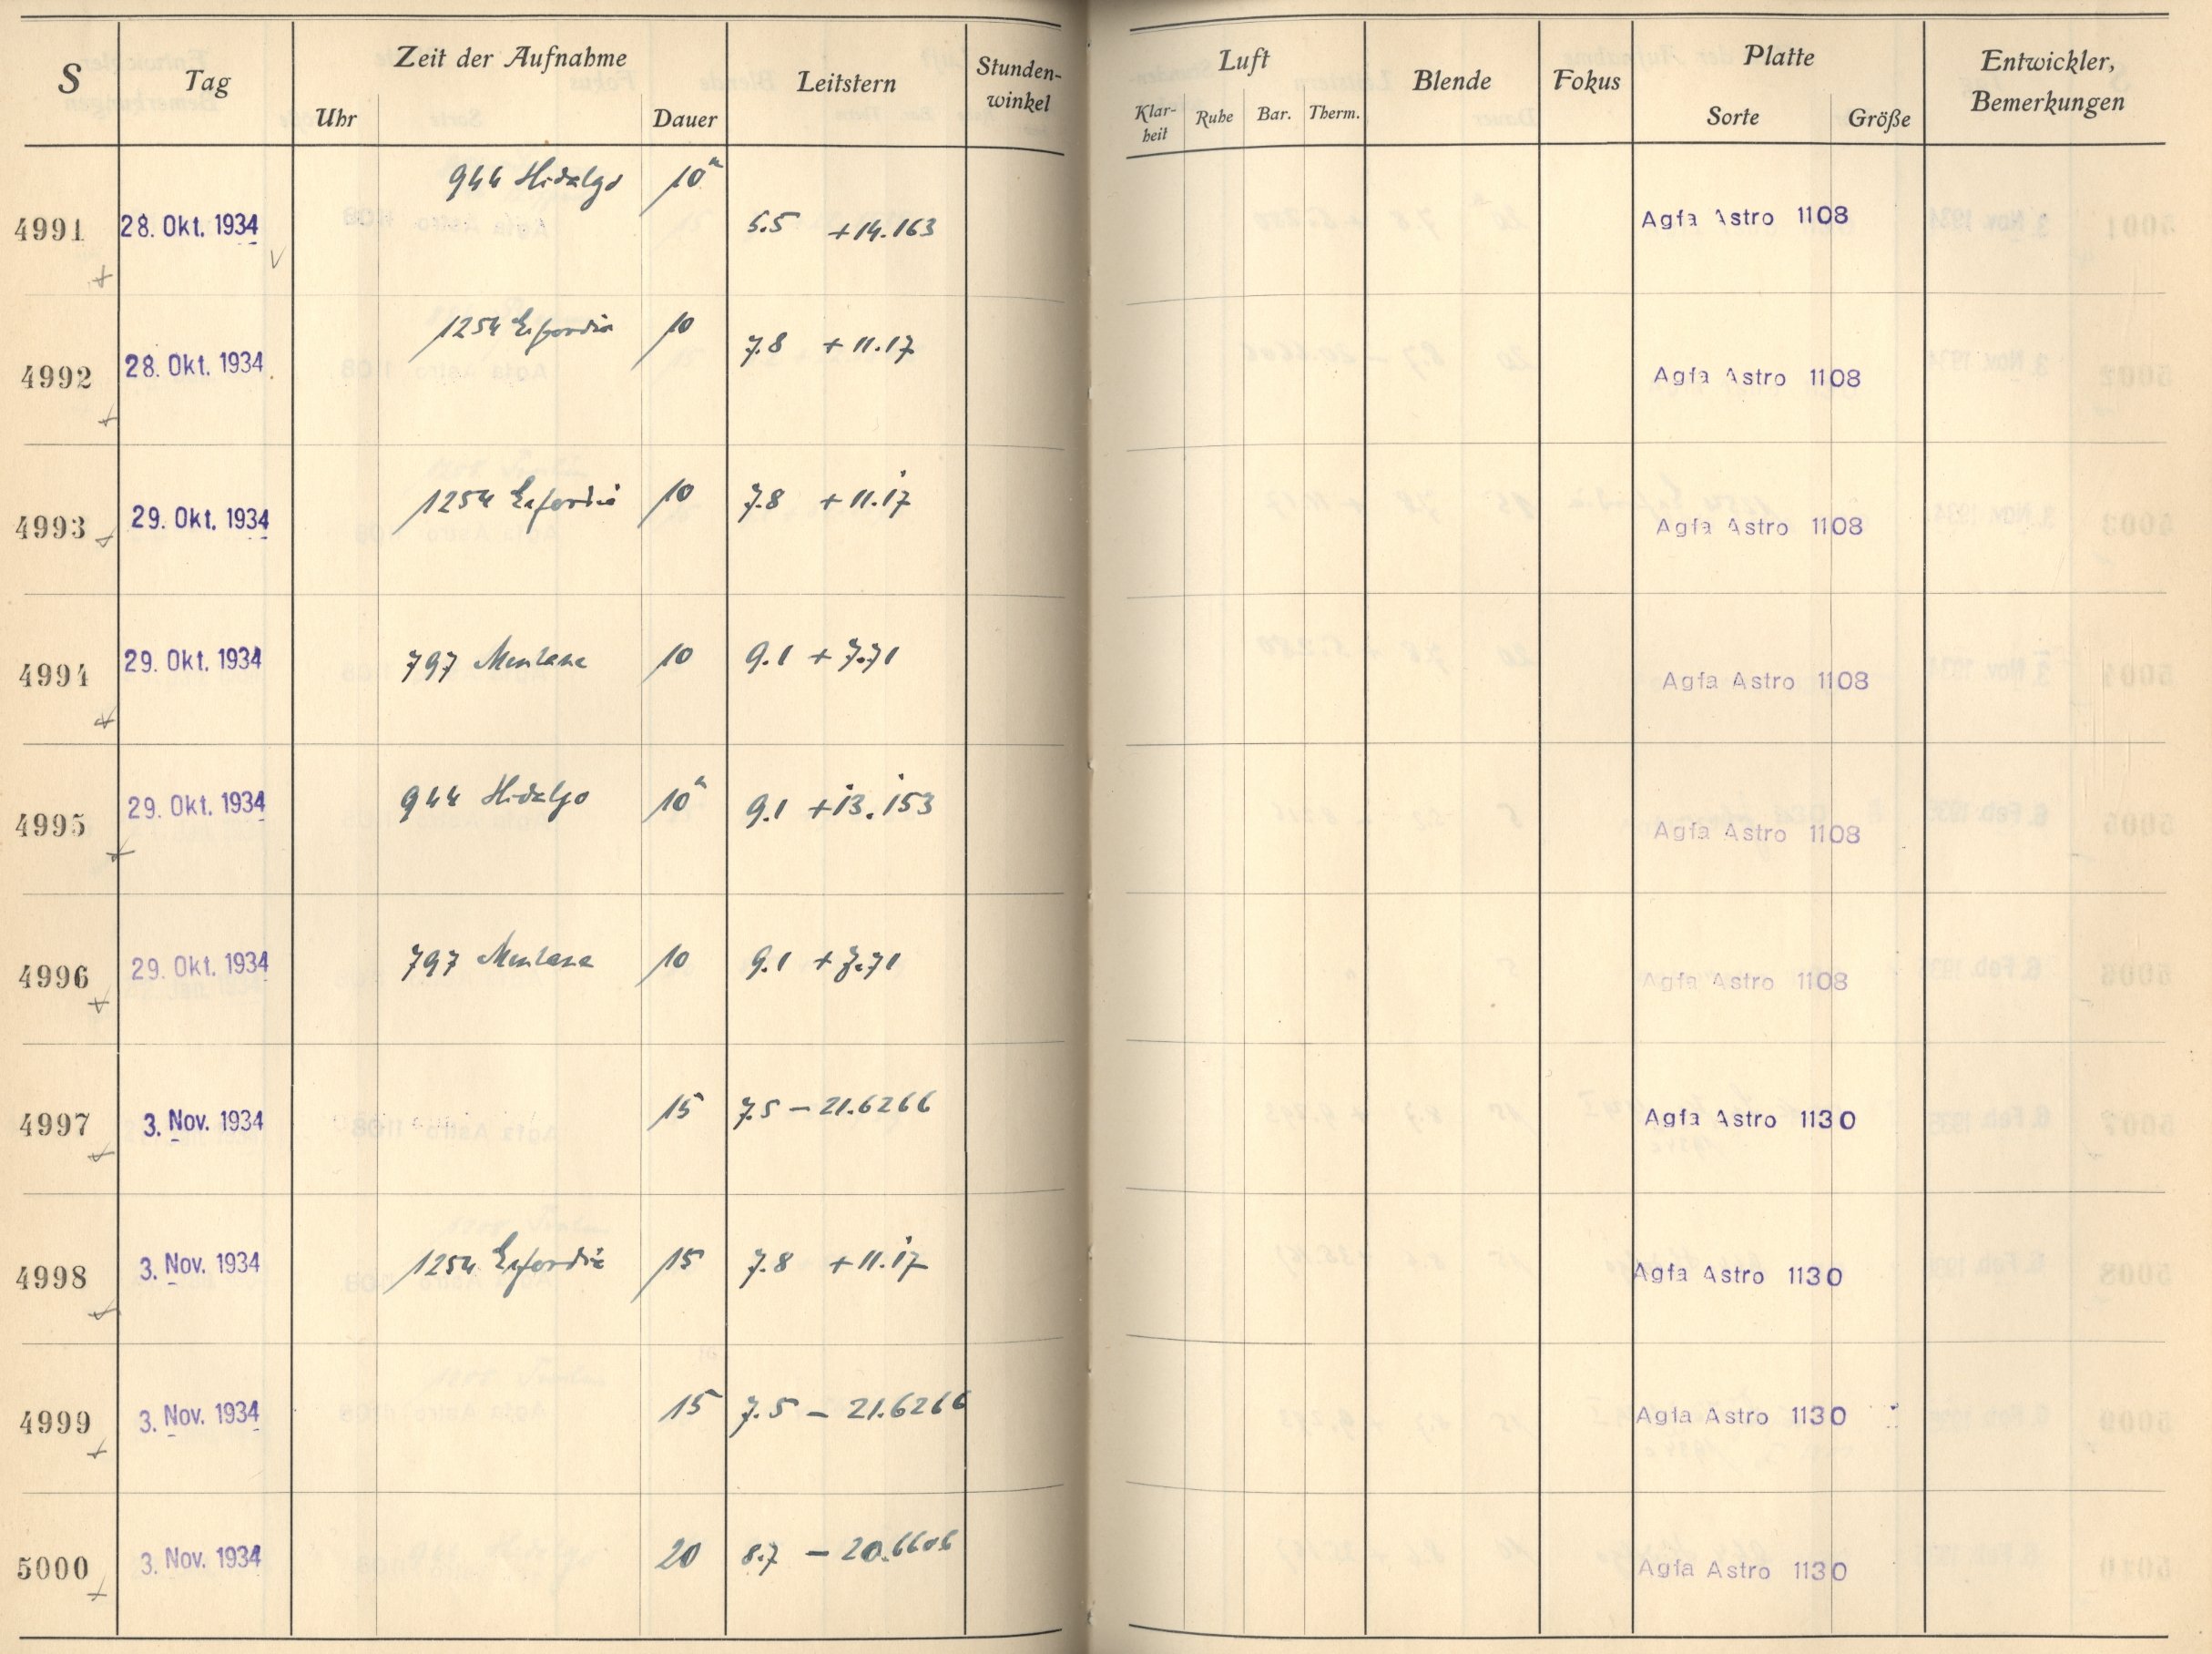 S Tag Zeit der Aufnahme Leitstern Stunden-winkel Luft Blende Fokus Platte Entwickler, Bemerkungen
Uhr Dauer Klar-heit Ruhe Bar. Therm. Sorte Größe
4991 28. Okt. 1934 944 Hidalgo 10m 5.5 +14.163 Agfa Astro 1108
4992 28. Okt. 1934 1254 Erfordia 10 7.8 +11.17 Agfa Astro 1108
4993 29. Okt. 1934 1254 Erfordia 10 7.8 +11.17 Agfa Astro 1108
4994 29. Okt. 1934 797 Montana 10 9.1 +7.71 Agfa Astro 1108
4995 29. Okt. 1934 944 Hidalgo 10m 9.1 +13.153 Agfa Astro 1108
4996 29. Okt. 1934 797 Montana 10 9.1 +7.71 Agfa Astro 1108
4997 3. Nov. 1934 15 7.5 – 21.6266 Agfa Astro 1130
4998 3. Nov. 1934 1254 Erfordia 15 7.8 +11.17 Agfa Astro 1130
4999 3. Nov. 1934 15 7.5 – 21.6266 Agfa Astro 1130
5000 3. Nov. 1934 20 8.7 – 20.6606 Agfa Astro 1130